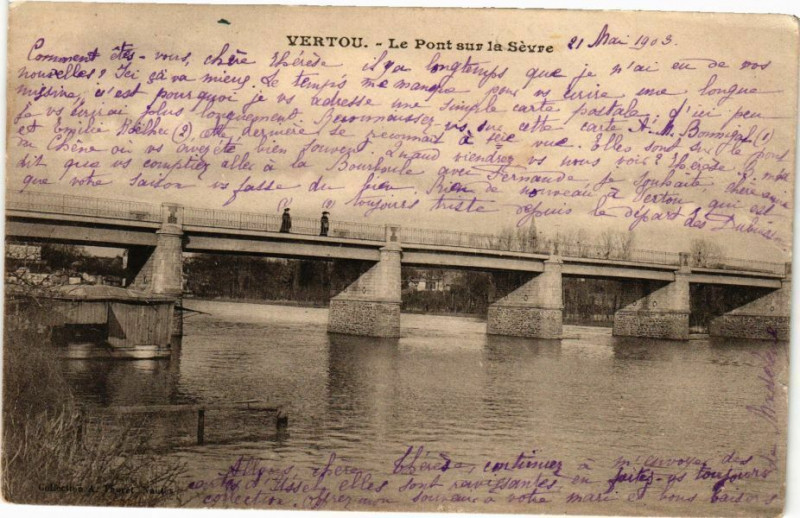 VERTOU. - Le Pont sur la Sèvre
21 Mai 1903.
Comment êtes-vous, chère Thérèse il y a longtemps que je n'ai eu de vos
nouvelles? Ici ça va mieux. Le temps me manque pour vs écrire une longue
missive, c'est pourquoi je vs adresse une simple carte postale, d'ici peu
je vs écrirai plus longuement. Reconnaissez-vs sur cette carte A. M. (1)
et Emilie (2) cette dernière se reconnait à 1ère vue. Elles sont sur le pont
du Chêne où vs avez été bien souvent. Quand viendrez vs nous voir? Thérèse
dit que vs comptiez aller à la Bourboule avec Fernande je souhaite chère amie
que votre saison vs fasse du bien. Rien de nouveau à Vertou qui est
toujours triste depuis le départ des
(1) (2)
Allons chère Thérèse, continuez à m'envoyer des
cartes d'Ussel elles sont ravissantes en faites-vs toujours
collection. Offrez mon souvenir à votre mari et bons baisers
Collection A.